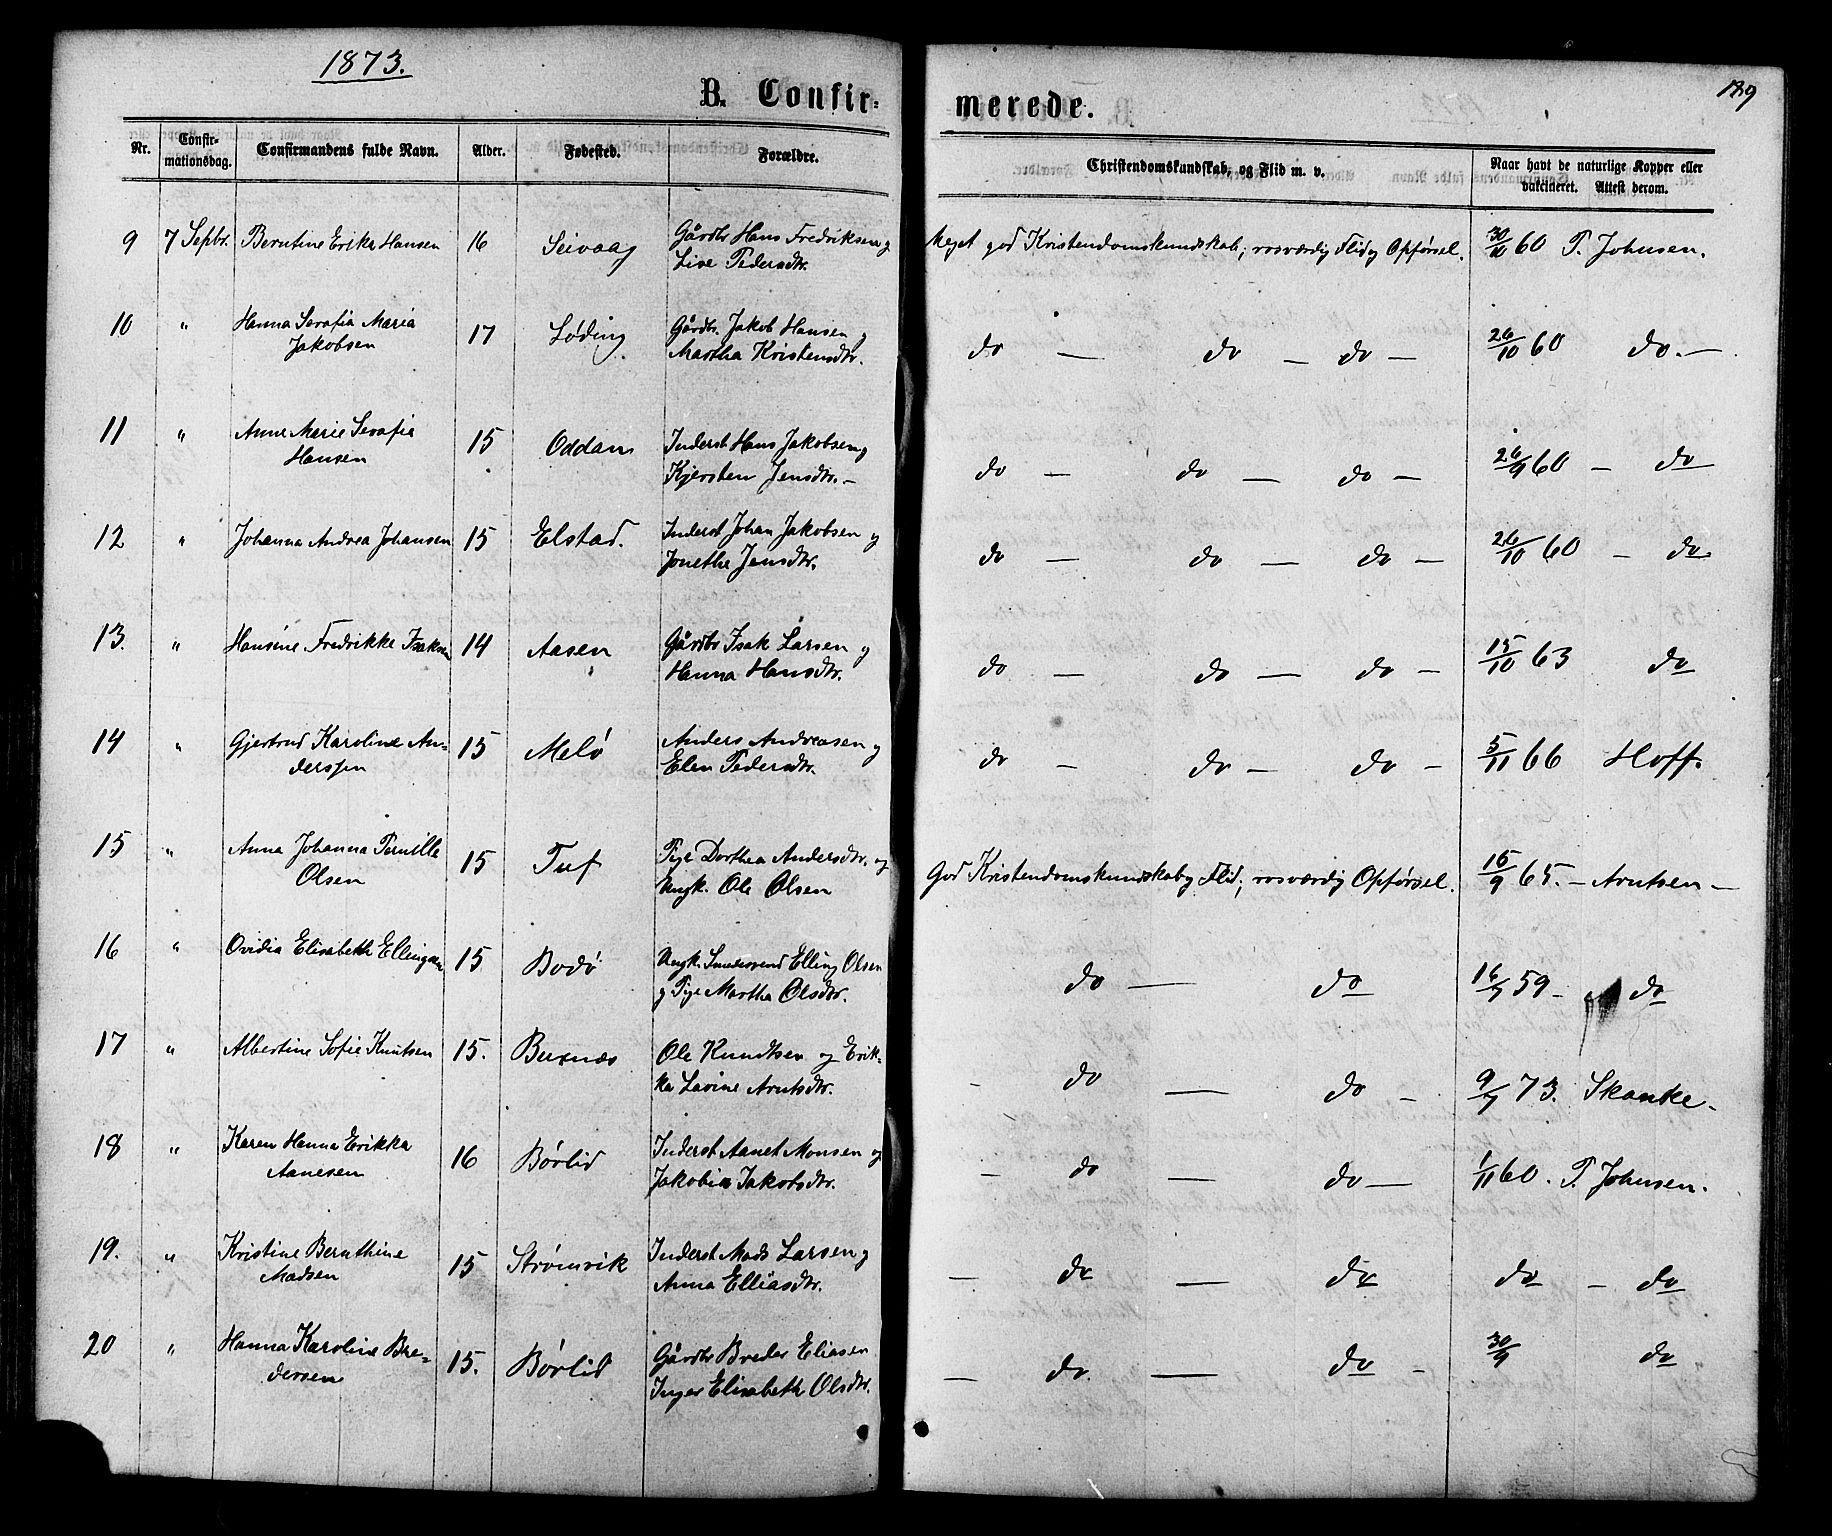 1873.
B. Confir-
merede.
189
Nr.
Confir-
mationsdag.
Confirmandens fulde Navn.
Alder.
Fødested.
Forældre.
Christendomskundskab, og Flid m. v.
Naar havt de naturlige Kopper eller
vakcineret. Attest derom.
9 7 Sepbr. Berntine Erika Hansen 16 Seivaag Gårdbr Hans Fredriksen og
Lise Pedersdtr.
Meget god Kristendomskundskab, rosværdig Flid og Opførsel. 30/10 60 P. Johnsen.
10 " Hanna Serafia Maria
Jakobsen 17 Løding Gårdbr. Jakob Hansen og
Martha Kristensdtr.
do — do — do — 26/10 60 do. —
11 " Anne Marie Serafia
Hansen 15 Oddan Inderst Hans Jakobsen og
Kjersten Jensdtr. —
do — do — do — 26/9 60 — do
12 " Johanna Andrea Johansen 15 Elstad. Inderst Johan Jakobsen og
Jonetha Jensdtr.
do — do — do — 26/10 60 — do
13. " Hansine Fredrikke Isaksen 14 Aasen Gårdbr Isak Larsen og
Hanna Hansdtr.
do — do — do — 15/10 63 do
14 " Gjertrud Karoline An-
derssen 15 Melø Anders Andreasen og
Elen Pedersdtr.
do — do — do — 5/11 66 Hoff.
15 " Anna Johanna Pernille
Olsen 15 Tuf Pige Dorthea Andersdtr. og
Ungk. Ole Olsen
God Kristendomskundskab og Flid; rosværdig Opførsel. 15/9 65. — Arntsen —
16 " Ovidia Elisabeth Ellingsen 15 Bodø Ungk. Smedsvend Elling Olsen
og Pige Martha Olsdtr.
do — do 16/7 59 — do
17 " Albertine Sofie Knutsen 15. Buxnæs Ole Knudtsen og Erik-
ka Lavine Arntsdtr.
do — do — 9/7 73. Skanke —
18 " Karen Hanna Erikka
Aanesen 16 Børlid Inderst Aanet Monsen og
Jakobia Jakobsdtr.
— do — do — 1/11 60. P. Johnsen.
19. " Kristine Bernthine
Madsen 15 Strømvik Inderst Mads Larsen og
Anna Elliasdtr.
— do — do do — do
20 " Hanna Karoline Bre-
dersen 15. Børlid Gårdbr Breder Eliasen
Inger Elisabeth Olsdtr.
— do. — do — 30/9 do